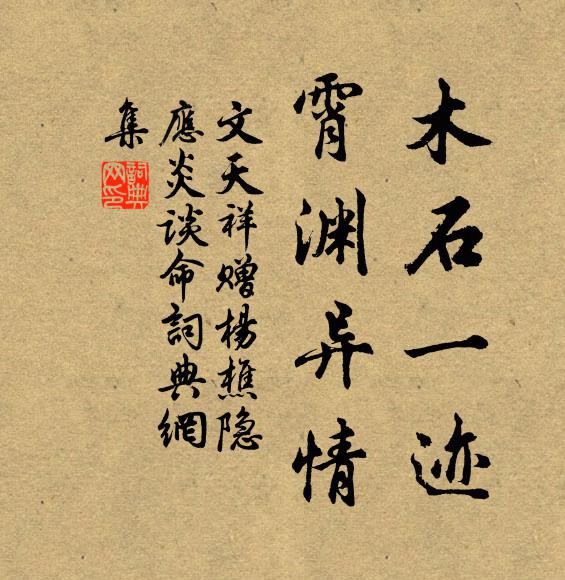 木石一迹
霄渊异情
文天祥赠楊樵隐
應炎谈命詞典網
集
詞典网印